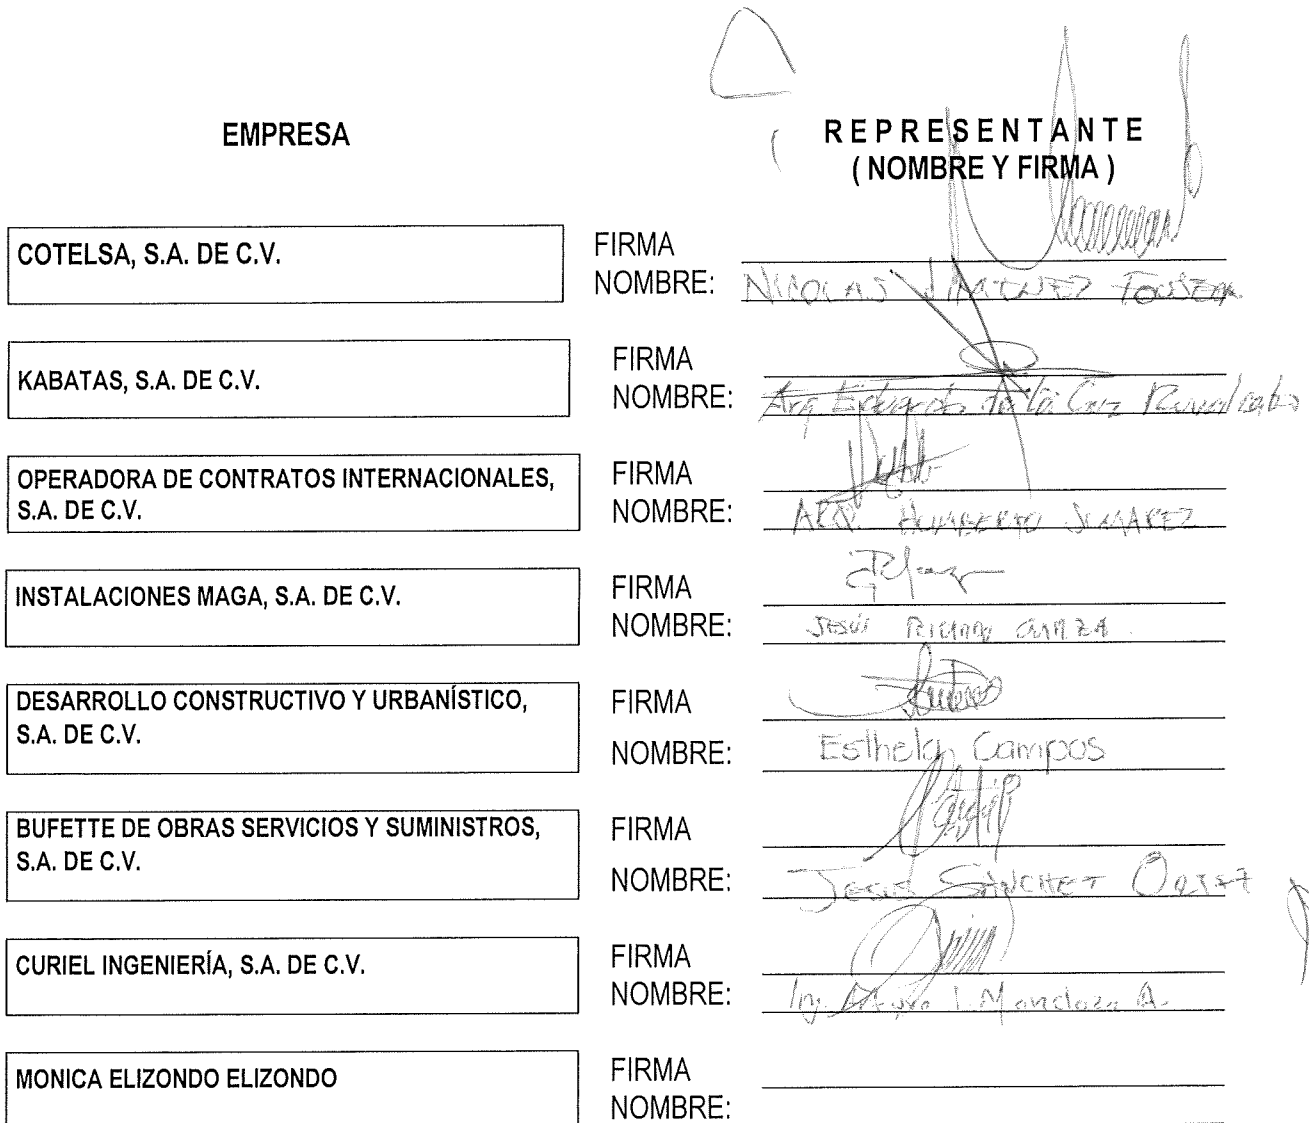 EMPRESA
REPRESENTANTE
( NOMBRE Y FIRMA )
COTELSA, S.A. DE C.V.
FIRMA
NOMBRE: NICOLAS JIMENEZ
KABATAS, S.A. DE C.V.
FIRMA
NOMBRE: Arq Eduardo de la Cruz
OPERADORA DE CONTRATOS INTERNACIONALES,
S.A. DE C.V.
FIRMA
NOMBRE: ARQ. HUMBERTO JUAREZ
INSTALACIONES MAGA, S.A. DE C.V.
FIRMA
NOMBRE: JESÚS
DESARROLLO CONSTRUCTIVO Y URBANÍSTICO,
S.A. DE C.V.
FIRMA
NOMBRE: Esthela Campos
BUFETTE DE OBRAS SERVICIOS Y SUMINISTROS,
S.A. DE C.V.
FIRMA
NOMBRE: JESUS SÁNCHEZ
CURIEL INGENIERÍA, S.A. DE C.V.
FIRMA
NOMBRE: Ing. Arturo I. Mendoza A.
MONICA ELIZONDO ELIZONDO
FIRMA
NOMBRE: